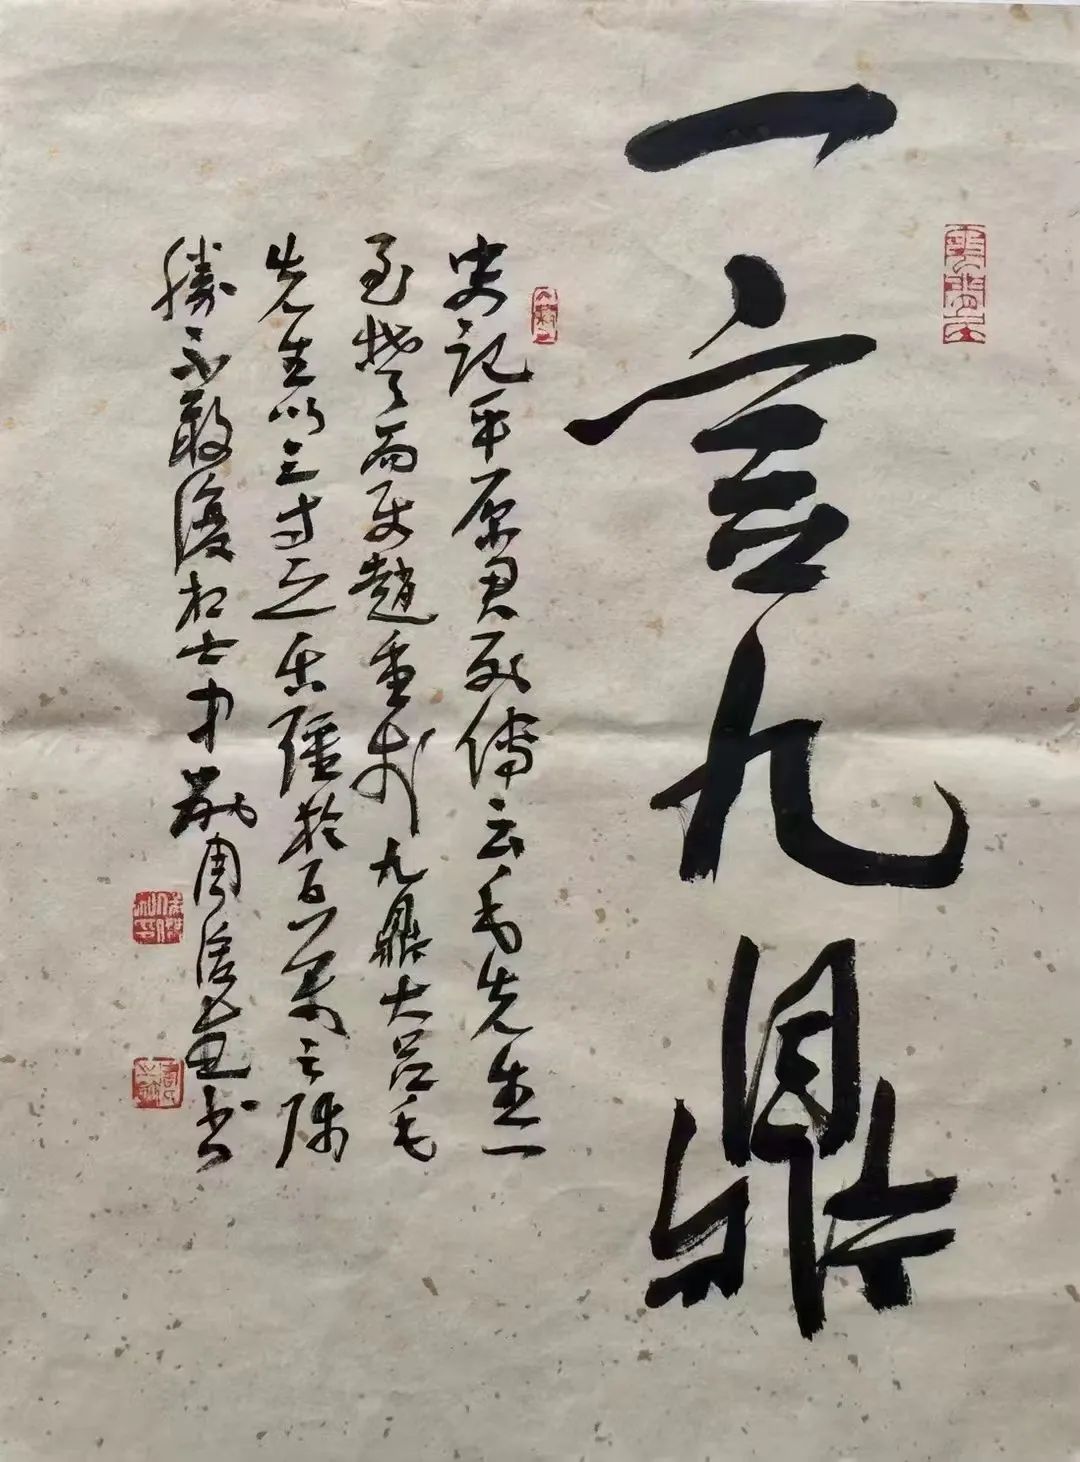 一言九鼎
史記平原君列傳云毛先生一
至楚而使趙重於九鼎大吕毛
先生以三寸之舌彊於百萬之師
勝不敢復相士 周 書